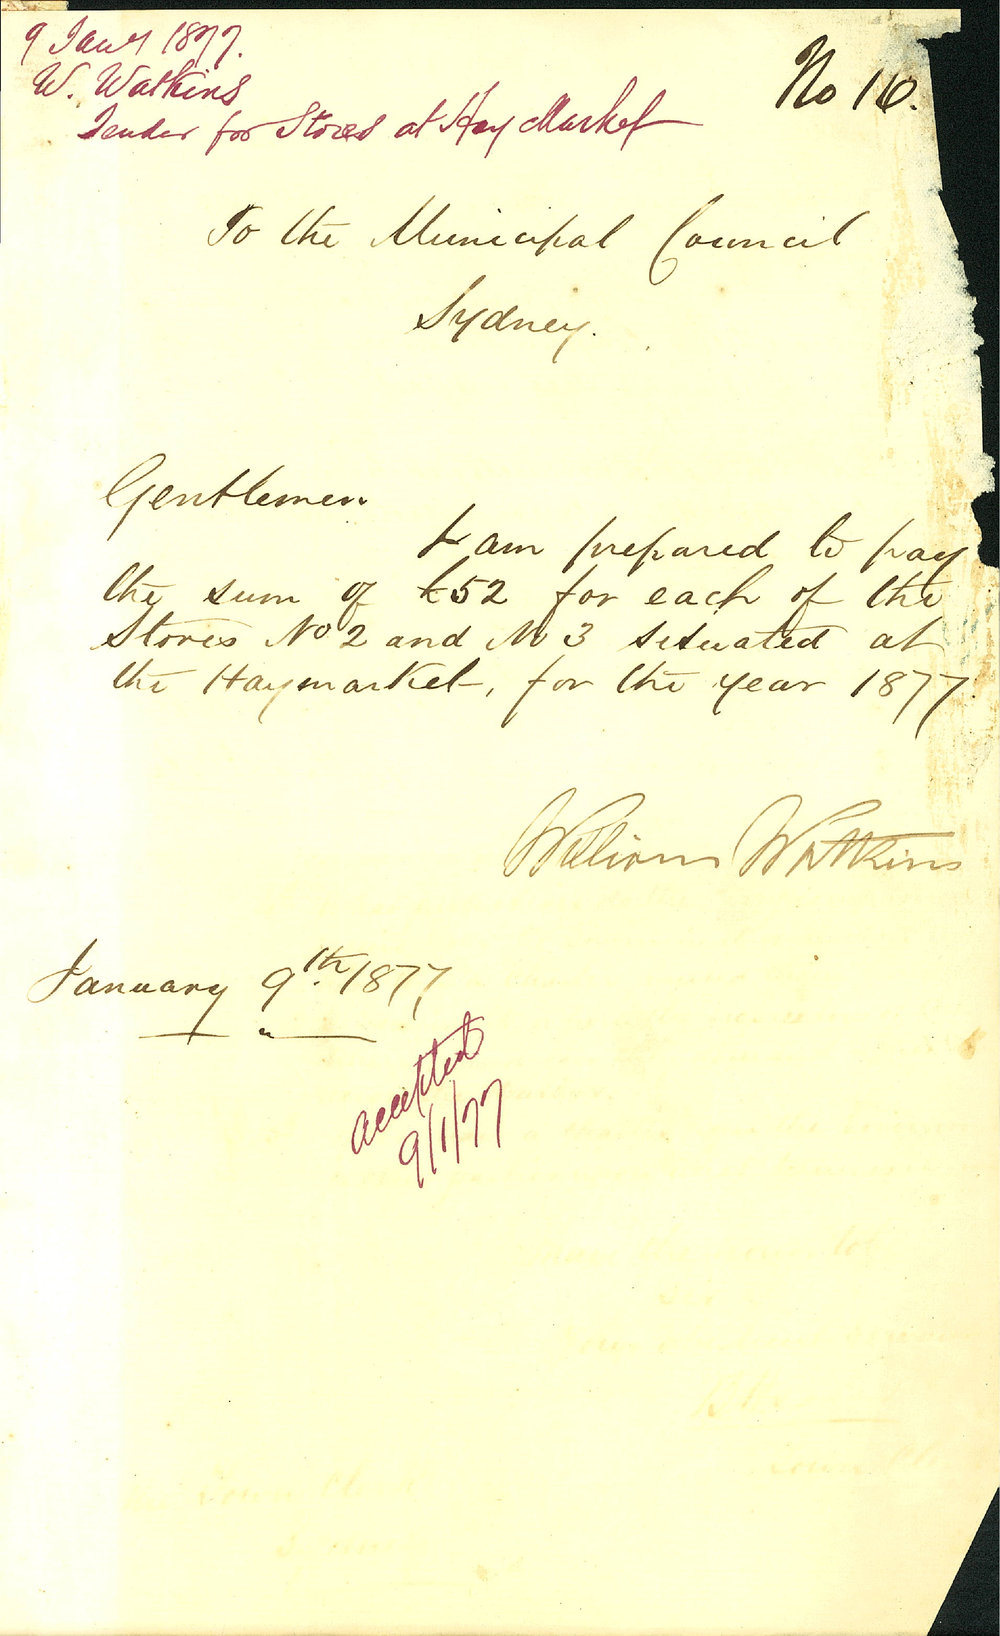 9 Jany 1877.
W. Watkins
Tender for Stores at Hay Market
No 16.
To the Municipal Council
Sydney.
Gentlemen
I am prepared to pay
the sum of £52 for each of the
Stores No 2 and No 3 situated at
the Haymarket, for the year 1877.
William Watkins
January 9th. 1877,
accepted
9/1/77